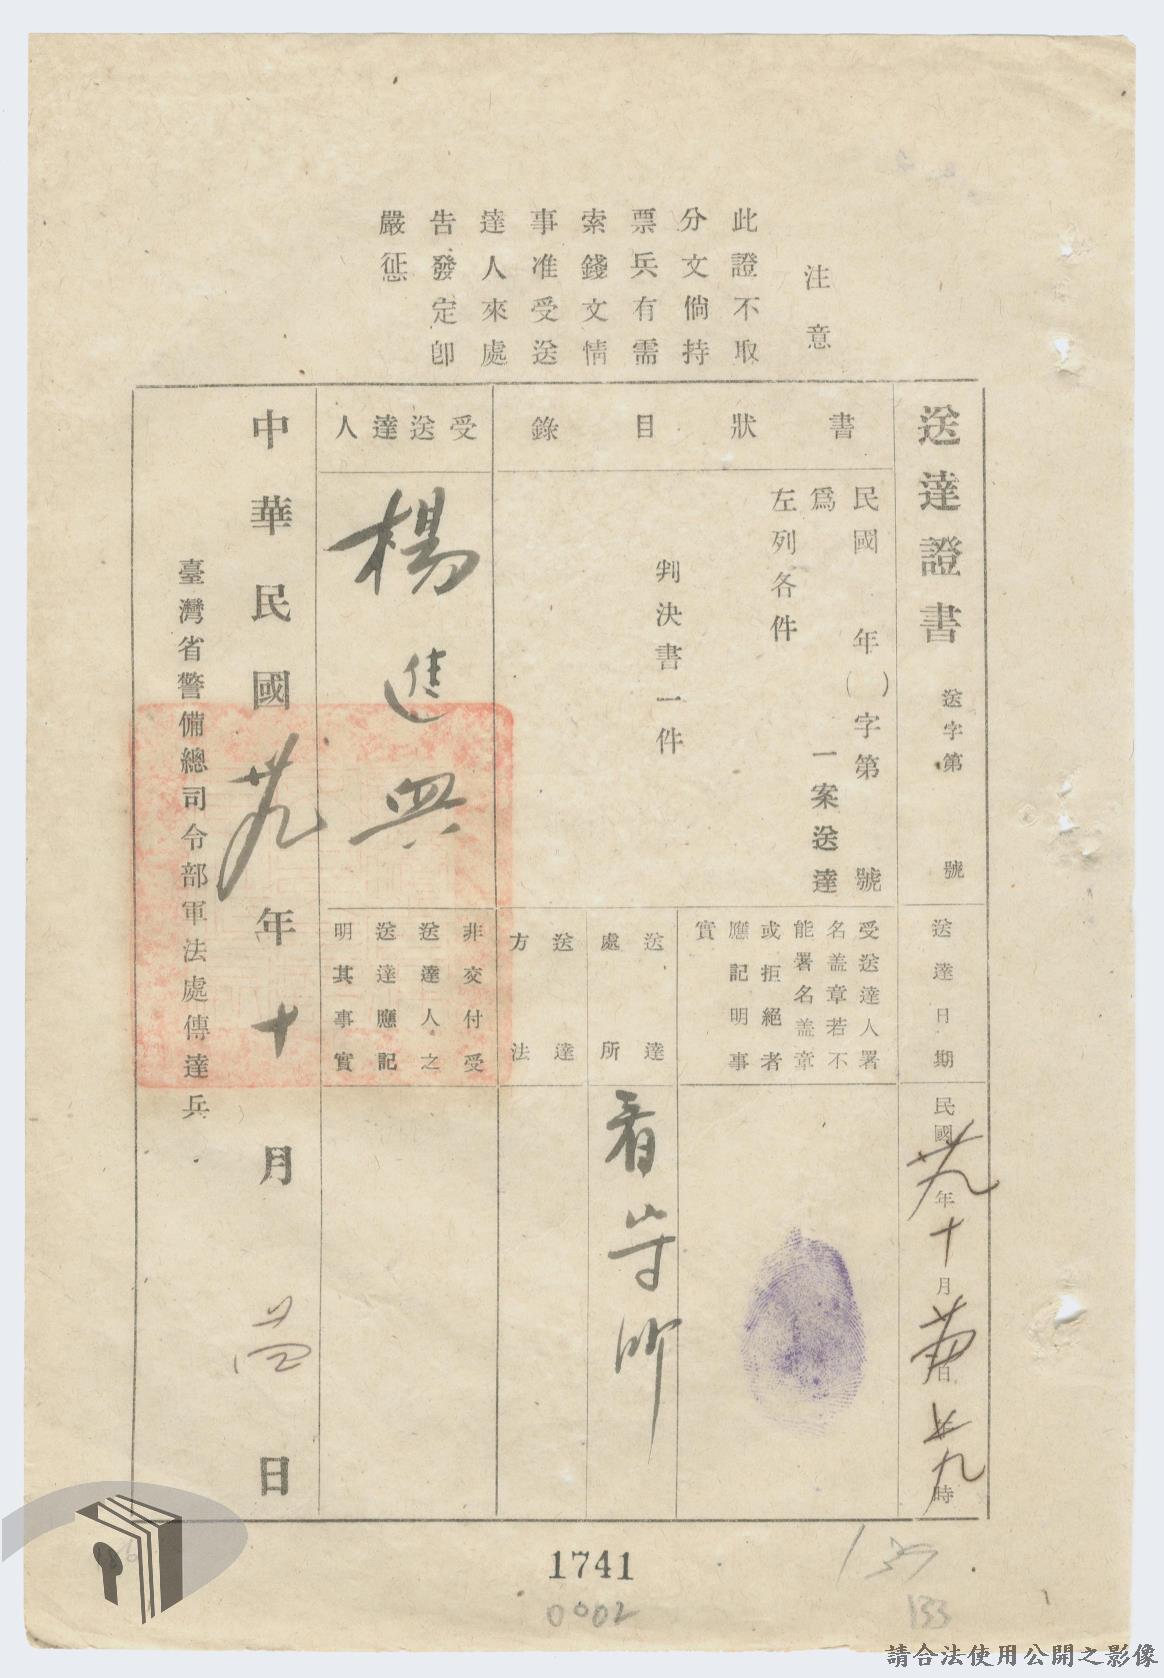 注意
此證不取
分文倘持
票兵有需
索錢文情
事准受送
達人來處
告發定即
嚴惩
送達證書
送字第 號
送達日期
民國廿九年十月 日 九時
書狀目錄
民國 年( )字第 號
為 一案送達
左列各件
判決書一件
受送達人署
名盖章若不
能署名盖章
或拒絕者
應記明事
實
送達處所
看守所
送達方法
受送達人
楊進興
非交付受
送達人之
送達應記
明其事實
中華民國廿九年十月 日
臺灣省警備總司令部軍法處傳達兵
1741
0002
137
133
請合法使用公開之影像